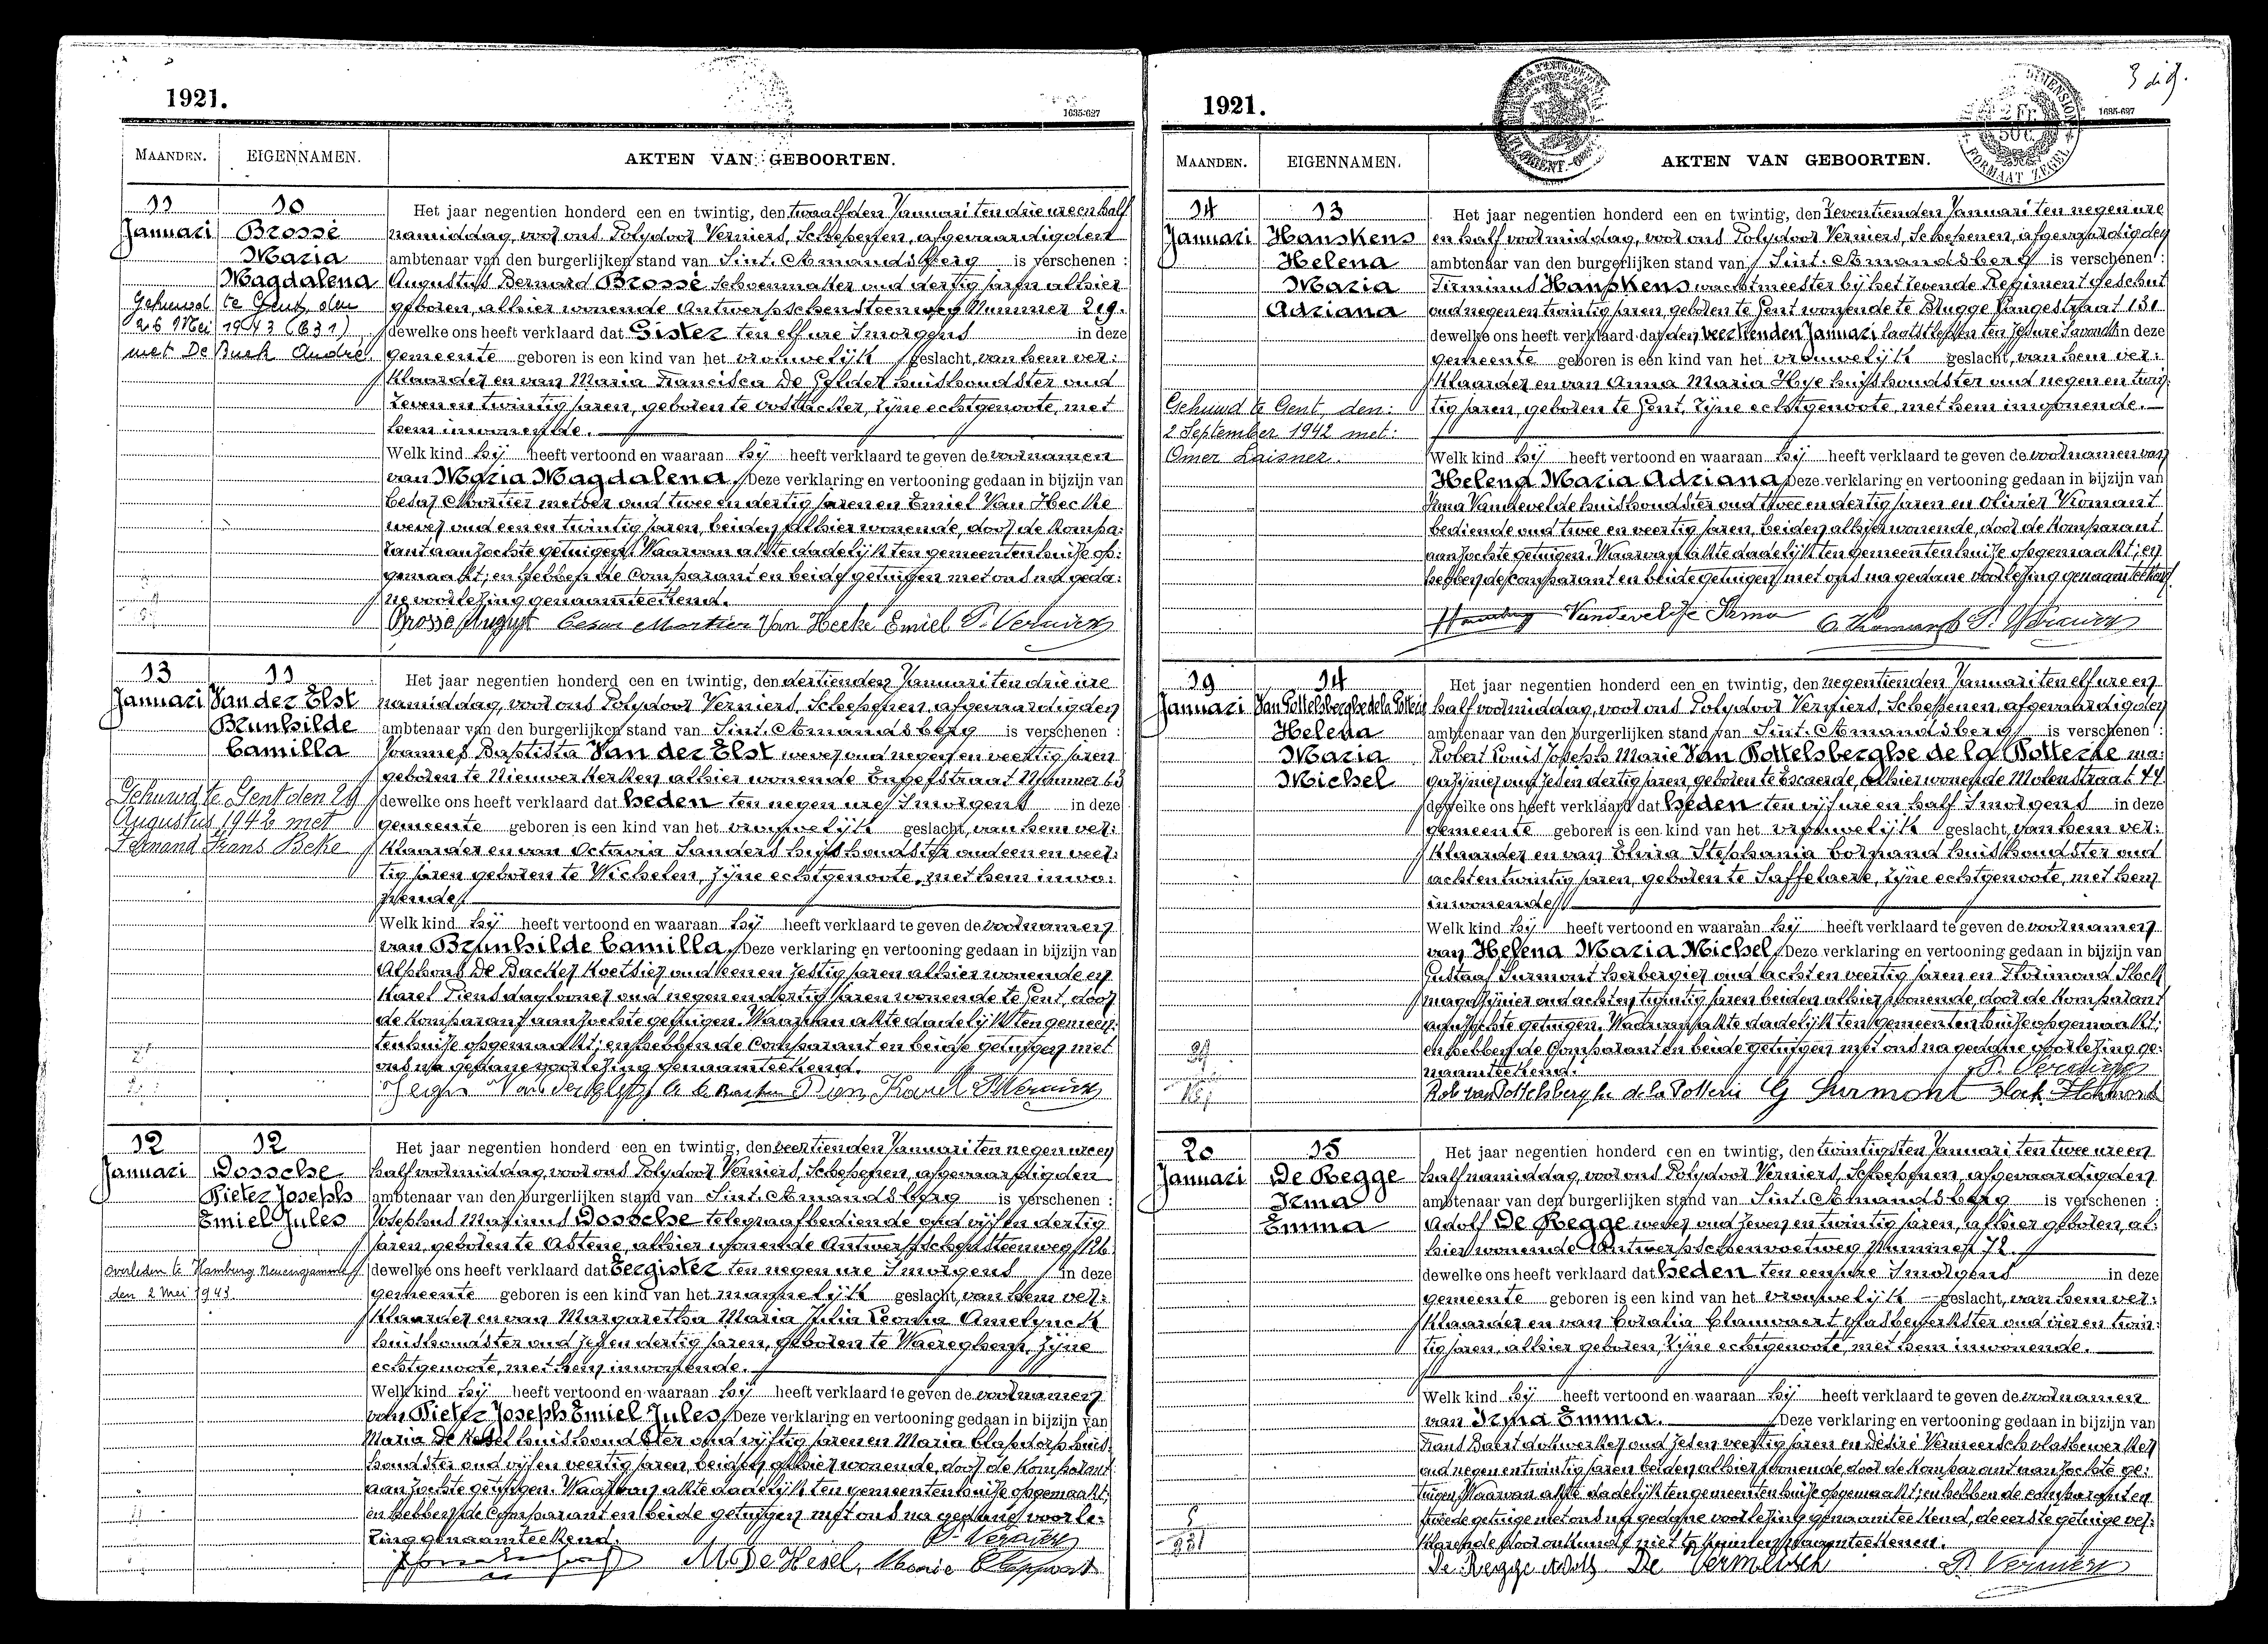 1921.
1635-627
MAANDEN. EIGENNAMEN. AKTEN VAN GEBOORTEN.
11 Januari
10 Brossé Maria Magdalena
Gehuwd te Gent den
26 Mei 1943 (631)
met De Buck André.
Het jaar negentien honderd een en twintig, den twaalfden Januari ten drie ure en half
namiddag, voor ons Polydoor Verniers, Schepenen, afgevaardigden
ambtenaar van den burgerlijken stand van Sint-Amandsberg is verschenen :
Augustus Bernard Brossé schoenmaker oud dertig jaren alhier
geboren, alhier wonende Antwerpschensteenweg Nummer 219.
dewelke ons heeft verklaard dat Gister ten elf ure Smorgens in deze
gemeente geboren is een kind van het vrouwelijk geslacht, van hem ver:
klaarder en van Maria Francisca De Gelder huishoudster oud
zeven en twintig jaren, geboren te Oostacker, zijne echtgenoote, met
hem inwonende.
Welk kind hij heeft vertoond en waaraan hij heeft verklaard te geven de voornamen
van Maria Magdalena. Deze verklaring en vertooning gedaan in bijzijn van
Cesar Mortier metser oud twee en dertig jaren en Emiel Van Hecke
wever oud een en twintig jaren, beiden alhier wonende, door de kompa:
rant aanzochte getuigen. Waarvan akte dadelijk ten gemeentenhuize op:
gemaakt; en hebben de Comparant en beide getuigen met ons na geda:
ne voorlezing genaamteekend.
Brossé August Cesar Mortier Van Hecke Emiel P. Verniers
13 Januari
11 Van der Elst Brunhilde Camilla
Gehuwd te Gent den 29
Augustus 1946 met
Fernand Frans Beke
Het jaar negentien honderd een en twintig, den dertienden Januari ten drie ure
namiddag, voor ons Polydoor Verniers, Schepenen, afgevaardigden
ambtenaar van den burgerlijken stand van Sint-Amandsberg is verschenen :
Joannes Baptista Van der Elst wever oud negen en veertig jaren
geboren te Nieuwerkerken alhier wonende Engelstraat Nummer 63
dewelke ons heeft verklaard dat heden ten negen ure Smorgens in deze
gemeente geboren is een kind van het vrouwelijk geslacht, van hem ver:
klaarder en van Octavia Sanders huishoudster oud een en veer:
tig jaren geboren te Wichelen, zijne echtgenoote, met hem inwo:
nende.
Welk kind hij heeft vertoond en waaraan hij heeft verklaard te geven de voornamen
van Brunhilde Camilla. Deze verklaring en vertooning gedaan in bijzijn van
Alphons De Backer koetsier oud een en zestig jaren alhier wonende en
Karel Piens dagloner oud negen en dertig jaren wonende te Gent, door
de komparant aanzochte getuigen. Waarvan akte dadelijk ten gemeen:
tenhuize opgemaakt; en hebben de Comparant en beide getuigen met
ons na gedane voorlezing genaamteekend.
Van der Elst A. De Backer Piens Karel P. Verniers
12 Januari
12 Dossche Pieter Joseph Emiel Jules
overleden te Hamburg Neuengamme
den 2 Mei 1943
Het jaar negentien honderd een en twintig, den veertienden Januari ten negen ure en
half voormiddag, voor ons Polydoor Verniers, Schepenen, afgevaardigden
ambtenaar van den burgerlijken stand van Sint-Amandsberg is verschenen :
Josephus Marinus Dossche telegraafbediende oud vijf en dertig
jaren, geboren te Astene, alhier wonende Antwerpschensteenweg
dewelke ons heeft verklaard dat Eergister ten negen ure Smorgens in deze
gemeente geboren is een kind van het mannelijk geslacht, van hem ver:
klaarder en van Margaretha Maria Julia Leonia Amelynck
huishoudster oud zes en dertig jaren, geboren te Waereghem, zijne
echtgenoote, met hem inwonende.
Welk kind hij heeft vertoond en waaraan hij heeft verklaard te geven de voornamen
van Pieter Joseph Emiel Jules, Deze verklaring en vertooning gedaan in bijzijn van
Maria De huishoudster oud vijftig jaren en Maria huis:
houdster oud vijf en veertig jaren, beiden alhier wonende, door de komparant
aanzochte getuigen. Waarvan akte dadelijk ten gemeentenhuize opgemaakt;
en hebben de Comparant en beide getuigen met ons na gedane voorle:
zing genaamteekend. P. Verniers
M. De Marie
3 de
1921.
1635-627
MAANDEN. EIGENNAMEN. AKTEN VAN GEBOORTEN.
14 Januari
13 Hanskens Helena Maria Adriana
Gehuwd te Gent, den:
2 September 1942 met:
Omer Laisner.
Het jaar negentien honderd een en twintig, den zeventienden Januari ten negen ure
en half voormiddag, voor ons Polydoor Verniers, Schepenen, afgevaardigden
ambtenaar van den burgerlijken stand van Sint-Amandsberg is verschenen :
Firminus Hanskens wachtmeester bij het zevende Regiment Geschut
oud negen en twintig jaren geboren te Gent wonende te Brugge Langestraat 131
dewelke ons heeft verklaard dat den veertienden Januari laatstleden ten zes ure Savonds in deze
gemeente geboren is een kind van het vrouwelijk geslacht, van hem ver:
klaarder en van Anna Maria Hye huishoudster oud negen en twin:
tig jaren, geboren te Gent, zijne echtgenoote, met hem inwonende.
Welk kind hij heeft vertoond en waaraan hij heeft verklaard te geven de voornamen van
Helena Maria Adriana, Deze verklaring en vertooning gedaan in bijzijn van
Irma Vandevelde huishoudster oud twee en dertig jaren en Olivier Vromant
bediende oud twee en veertig jaren, beiden alhier wonende, door de komparant
aanzochte getuigen. Waarvan akte dadelijk ten gemeentenhuize opgemaakt; en
hebben de comparant en beide getuigen met ons na gedane voorlezing genaamteekend
Vandevelde Irma O. Vromant P. Verniers
19 Januari
14 Van Pottelsberghe de la Potterie Helena Maria Michel
Het jaar negentien honderd een en twintig, den negentienden Januari ten elf ure en
half voormiddag, voor ons Polydoor Verniers, Schepenen, afgevaardigden
ambtenaar van den burgerlijken stand van Sint-Amandsberg is verschenen :
Robert Louis Joseph Marie Van Pottelsberghe de la Potterie ma:
gazijnier oud zes en dertig jaren, geboren te Escaende, alhier wonende Molenstraat 44
dewelke ons heeft verklaard dat heden ten vijf ure en half Smorgens in deze
gemeente geboren is een kind van het vrouwelijk geslacht, van hem ver:
klaarder en van Elvira Stephania Cornand huishoudster oud
acht en twintig jaren, geboren te Saffelaere, zijne echtgenoote, met hem
inwonende.
Welk kind hij heeft vertoond en waaraan hij heeft verklaard te geven de voornamen
van Helena Maria Michel, Deze verklaring en vertooning gedaan in bijzijn van
Gustaaf Surmont herbergier oud acht en veertig jaren en Florimond Slock
magazijnier oud acht en twintig jaren beiden alhier wonende, door de komparant
aanzochte getuigen. Waarvan akte dadelijk ten gemeentenhuize opgemaakt;
en hebben de Comparant en beide getuigen met ons na gedane voorlezing ge:
naamteekend. P. Verniers
Rob van Pottelsberghe de la Potterie G Surmont Slock Florimond
20 Januari
15 De Regge Irma Emma
Het jaar negentien honderd een en twintig, den twintigsten Januari ten twee ure en
half namiddag, voor ons Polydoor Verniers, Schepenen, afgevaardigden
ambtenaar van den burgerlijken stand van Sint-Amandsberg is verschenen :
Adolf De Regge wever oud zeven en twintig jaren, alhier geboren, al:
hier wonende Antwerpschenvoetweg Nummer 72.
dewelke ons heeft verklaard dat heden ten een ure Smorgens in deze
gemeente geboren is een kind van het vrouwelijk geslacht, van hem ver:
klaarder en van Coralia Clauwaert vlasbewerkster oud vier en twin:
tig jaren, alhier geboren, zijne echtgenoote, met hem inwonende.
Welk kind hij heeft vertoond en waaraan hij heeft verklaard te geven de voornamen
van Irma Emma. Deze verklaring en vertooning gedaan in bijzijn van
Frans Baert dokwerker oud zes en veertig jaren en Désiré Vermeersch vlasbewerker
oud negen en twintig jaren beiden alhier wonende, door de komparant aanzochte ge:
tuigen. Waarvan akte dadelijk ten gemeentenhuize opgemaakt; en hebben de comparant en
tweede getuige met ons na gedane voorlezing genaamteekend, de eerste getuige ver:
klarende door onkunde niet te kunnen naamteekenen.
De Regge Adolf De Vermeersch P. Verniers